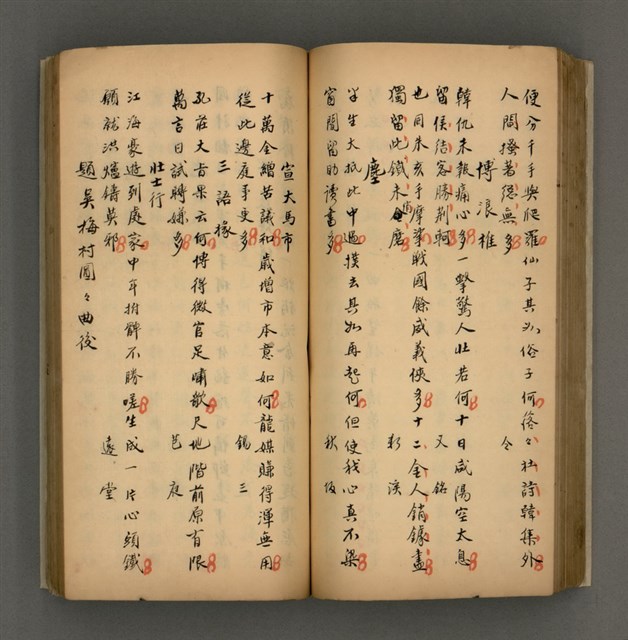 便分千手與爬羅仙子其如俗子何卷々杜詩韓集外
人間搔著總無多　令
博浪椎
韓仇未報痛心多一擊驚人壯若何十日咸陽空大息
留侯結客勝荊軻　又銘
也同朱亥手摩挲戰國餘威義俠多十二金人銷鑄盡
獨留此鐵未消磨　彩溪
塵
半生大抵此中過撲去其如再起何但使我心真不染
窗間留助讀書多　秋
宣大馬市
十萬金繒苦議和歲增市本意如何龍媒賺得渾無用
從此邊庭事更多　錫三
三語掾
孔莊大旨果云何博得微官足嘯歌尺地階前原有限
萬言日試將嫌多　芭庭
壯士行
江海豪遊到處家中年拊髀不勝嗟生成一片心頭鐵
願就洪爐鑄莫邪　遠堂
題吳梅村圓々曲後